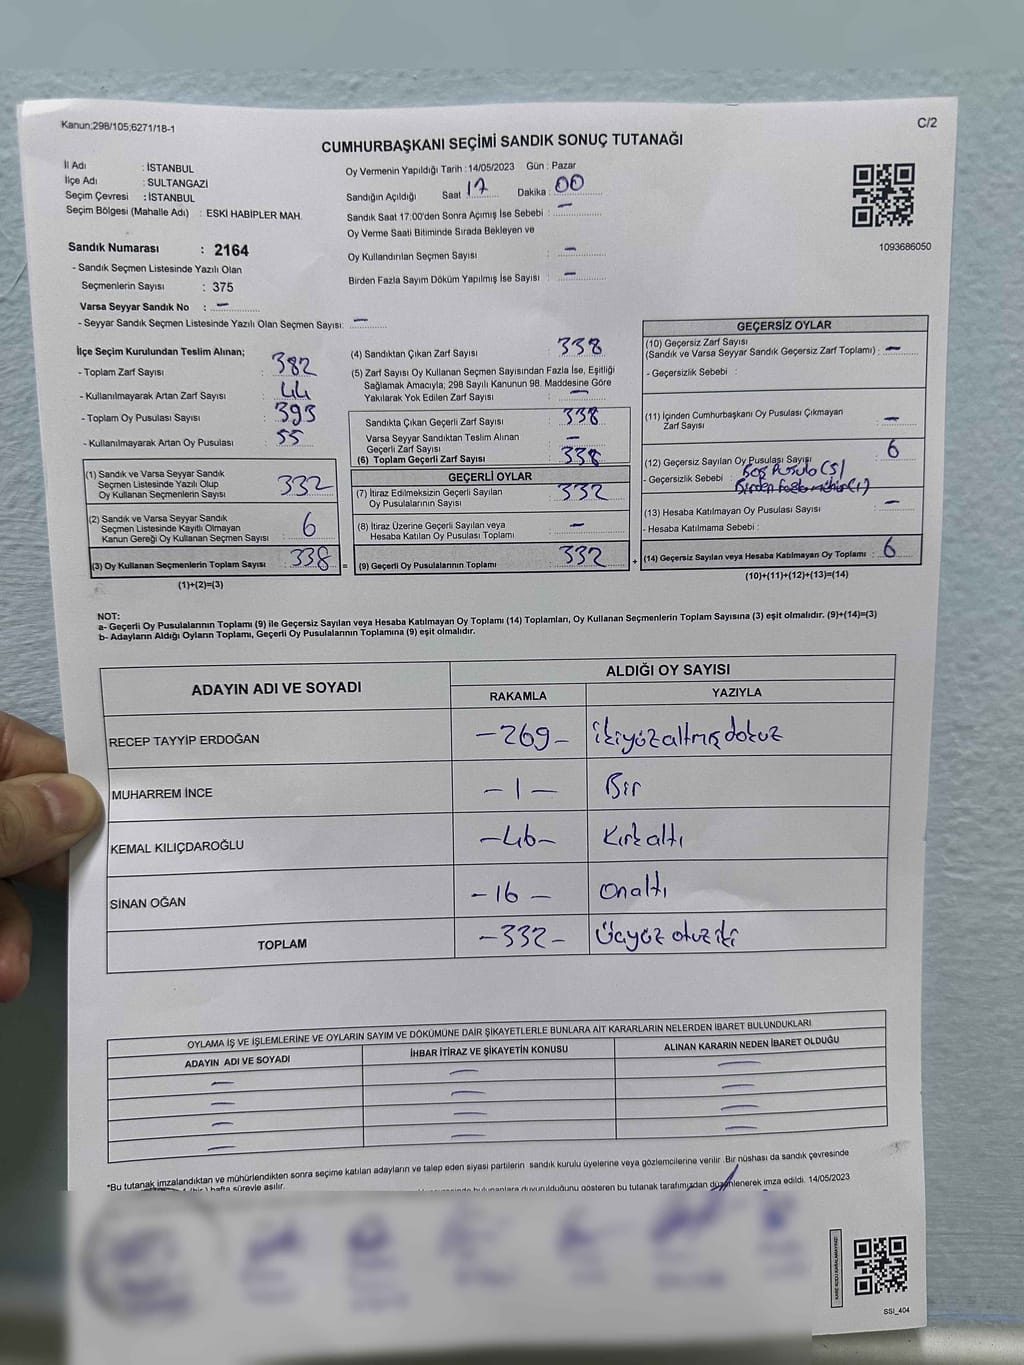 Kanun;298/105;6271/18-1
C/2
CUMHURBAŞKANI SEÇİMİ SANDIK SONUÇ TUTANAĞI
İl Adı : İSTANBUL
İlçe Adı : SULTANGAZİ
Seçim Çevresi : İSTANBUL
Seçim Bölgesi (Mahalle Adı) : ESKİ HABİPLER MAH.
Sandık Numarası : 2164
- Sandık Seçmen Listesinde Yazılı Olan
Seçmenlerin Sayısı : 375
Varsa Seyyar Sandık No : –
- Seyyar Sandık Seçmen Listesinde Yazılı Olan Seçmen Sayısı: –
Oy Vermenin Yapıldığı Tarih : 14/05/2023 Gün : Pazar
Sandığın Açıldığı Saat 17 Dakika : 00
Sandık Saat 17:00'den Sonra Açımış İse Sebebi : –
Oy Verme Saati Bitiminde Sırada Bekleyen ve
Oy Kullandırılan Seçmen Sayısı : –
Birden Fazla Sayım Döküm Yapılmış İse Sayısı : –
1093686050
İlçe Seçim Kurulundan Teslim Alınan;
- Toplam Zarf Sayısı : 382
- Kullanılmayarak Artan Zarf Sayısı : 44
- Toplam Oy Pusulası Sayısı : 393
- Kullanılmayarak Artan Oy Pusulası : 55
(1) Sandık ve Varsa Seyyar Sandık
Seçmen Listesinde Yazılı Olup
Oy Kullanan Seçmenlerin Sayısı : 332
(2) Sandık ve Varsa Seyyar Sandık
Seçmen Listesinde Kayıtlı Olmayan
Kanun Gereği Oy Kullanan Seçmen Sayısı : 6
(3) Oy Kullanan Seçmenlerin Toplam Sayısı : 338 =
(1)+(2)=(3)
(4) Sandıktan Çıkan Zarf Sayısı : 338
(5) Zarf Sayısı Oy Kullanan Seçmen Sayısından Fazla İse, Eşitliği
Sağlamak Amacıyla; 298 Sayılı Kanunun 98. Maddesine Göre
Yakılarak Yok Edilen Zarf Sayısı : –
Sandıkta Çıkan Geçerli Zarf Sayısı : 338
Varsa Seyyar Sandıktan Teslim Alınan
Geçerli Zarf Sayısı : –
(6) Toplam Geçerli Zarf Sayısı : 338
GEÇERLİ OYLAR
(7) İtiraz Edilmeksizin Geçerli Sayılan
Oy Pusulalarının Sayısı : 332
(8) İtiraz Üzerine Geçerli Sayılan veya
Hesaba Katılan Oy Pusulası Toplamı : –
(9) Geçerli Oy Pusulalarının Toplamı : 332 +
GEÇERSİZ OYLAR
(10) Geçersiz Zarf Sayısı
(Sandık ve Varsa Seyyar Sandık Geçersiz Zarf Toplamı) : –
- Geçersizlik Sebebi :
(11) İçinden Cumhurbaşkanı Oy Pusulası Çıkmayan
Zarf Sayısı : –
(12) Geçersiz Sayılan Oy Pusulası Sayısı : 6
- Geçersizlik Sebebi : Boş Pusula (5)
Birden fazla mühür(1)
(13) Hesaba Katılmayan Oy Pusulası Sayısı : –
- Hesaba Katılmama Sebebi :
(14) Geçersiz Sayılan veya Hesaba Katılmayan Oy Toplamı : 6
(10)+(11)+(12)+(13)=(14)
NOT:
a- Geçerli Oy Pusulalarının Toplamı (9) ile Geçersiz Sayılan veya Hesaba Katılmayan Oy Toplamı (14) Toplamları, Oy Kullanan Seçmenlerin Toplam Sayısına (3) eşit olmalıdır. (9)+(14)=(3)
b- Adayların Aldığı Oyların Toplamı, Geçerli Oy Pusulalarının Toplamına (9) eşit olmalıdır.
ADAYIN ADI VE SOYADI
ALDIĞI OY SAYISI
RAKAMLA YAZIYLA
RECEP TAYYİP ERDOĞAN –269– ikiyüzaltmış dokuz
MUHARREM İNCE –1– Bir
KEMAL KILIÇDAROĞLU –46– Kırkaltı
SİNAN OĞAN –16– onaltı
TOPLAM –332– Üçyüz otuz iki
OYLAMA İŞ VE İŞLEMLERİNE VE OYLARIN SAYIM VE DÖKÜMÜNE DAİR ŞİKAYETLERLE BUNLARA AİT KARARLARIN NELERDEN İBARET BULUNDUKLARI
ADAYIN ADI VE SOYADI İHBAR İTİRAZ VE ŞİKAYETİN KONUSU ALINAN KARARIN NEDEN İBARET OLDUĞU
– – –
– – –
– – –
– – –
*Bu tutanak imzalandıktan ve mühürlendikten sonra seçime katılan adayların ve talep eden siyasi partilerin sandık kurulu üyelerine veya gözlemcilerine verilir .Bir nüshası da sandık çevresinde
hafta süreyle asılır.
bulunanlara duyurulduğunu gösteren bu tutanak tarafımızdan düzenlenerek imza edildi. 14/05/2023
SSI_404